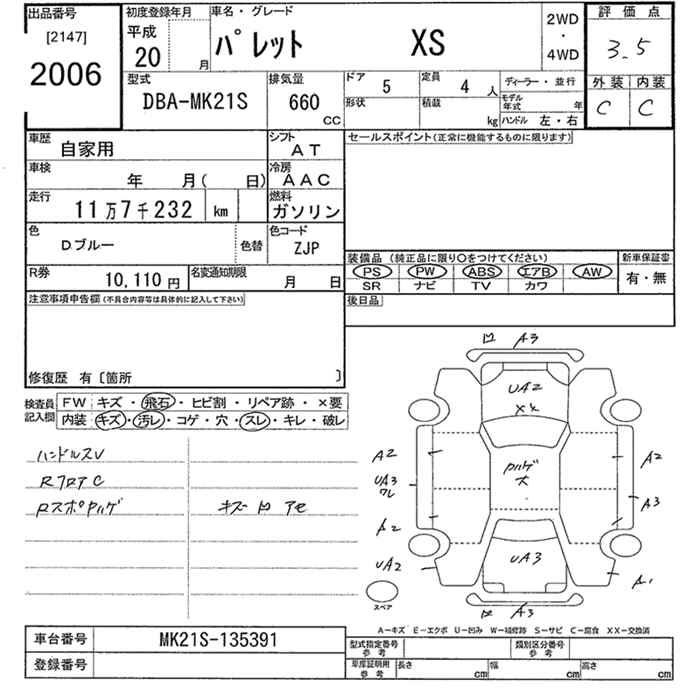 出品番号
[2147]
2006
初度登録年月
平成
20
月
車名・グレード
パレット XS
2WD
・
4WD
評価点
3.5
外装 内装
C C
型式
DBA-MK21S
排気量
660
CC
ドア
5
定員
4 人
ディーラー・並行
形状
積載
kg
モデル年式
年
ハンドル 左・右
車歴
自家用
シフト
AT
車検
年 月( 日)
冷房
AAC
走行
11万7千232 km
燃料
ガソリン
色
Dブルー
色替
色コード
ZJP
R券
10,110 円
名変通知期限
月 日
セールスポイント(正常に機能するものに限ります)
装備品 (純正品に限り○をつけてください)
PS PW ABS エアB AW
SR ナビ TV カワ
新車保証書
有・無
後日品
注意事項申告欄(不具合内容等は具体的に記入して下さい)
修復歴 有〔箇所 〕
検査員記入欄
FW キズ・飛石・ヒビ割・リペア跡・×要
内装 キズ・汚レ・コゲ・穴・スレ・キレ・破レ
ハンドルスレ
RフロアC
RスポPハゲ キズ 凹 アセ
凹 A3
UA2
XX
Pハゲ
大
A2
UA3
ワレ
A2
UA2
A2
A3
A2
A1
UA3
凹 A3
スペア
A-キズ E-エクボ U-凹み W-補修跡 S-サビ C-腐食 XX-交換済
車台番号
MK21S-135391
登録番号
型式指定番号
参考
類別区分番号
参考
車庫証明用
参考
長さ cm
幅 cm
高さ cm